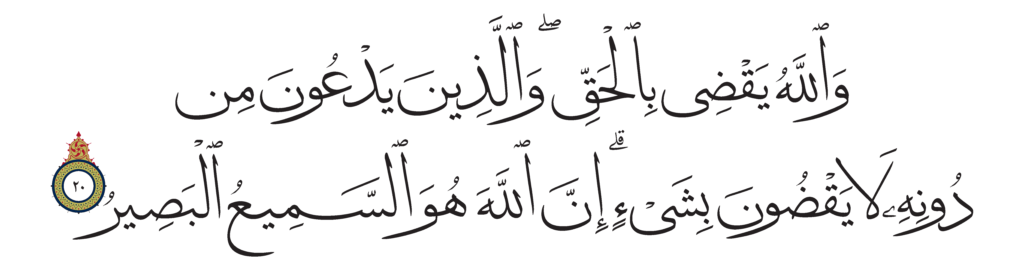 وَٱللَّهُ يَقْضِى بِٱلْحَقِّ ۖ وَٱلَّذِينَ يَدْعُونَ مِن
دُونِهِۦ لَا يَقْضُونَ بِشَىْءٍ ۗ إِنَّ ٱللَّهَ هُوَ ٱلسَّمِيعُ ٱلْبَصِيرُ ٢٠